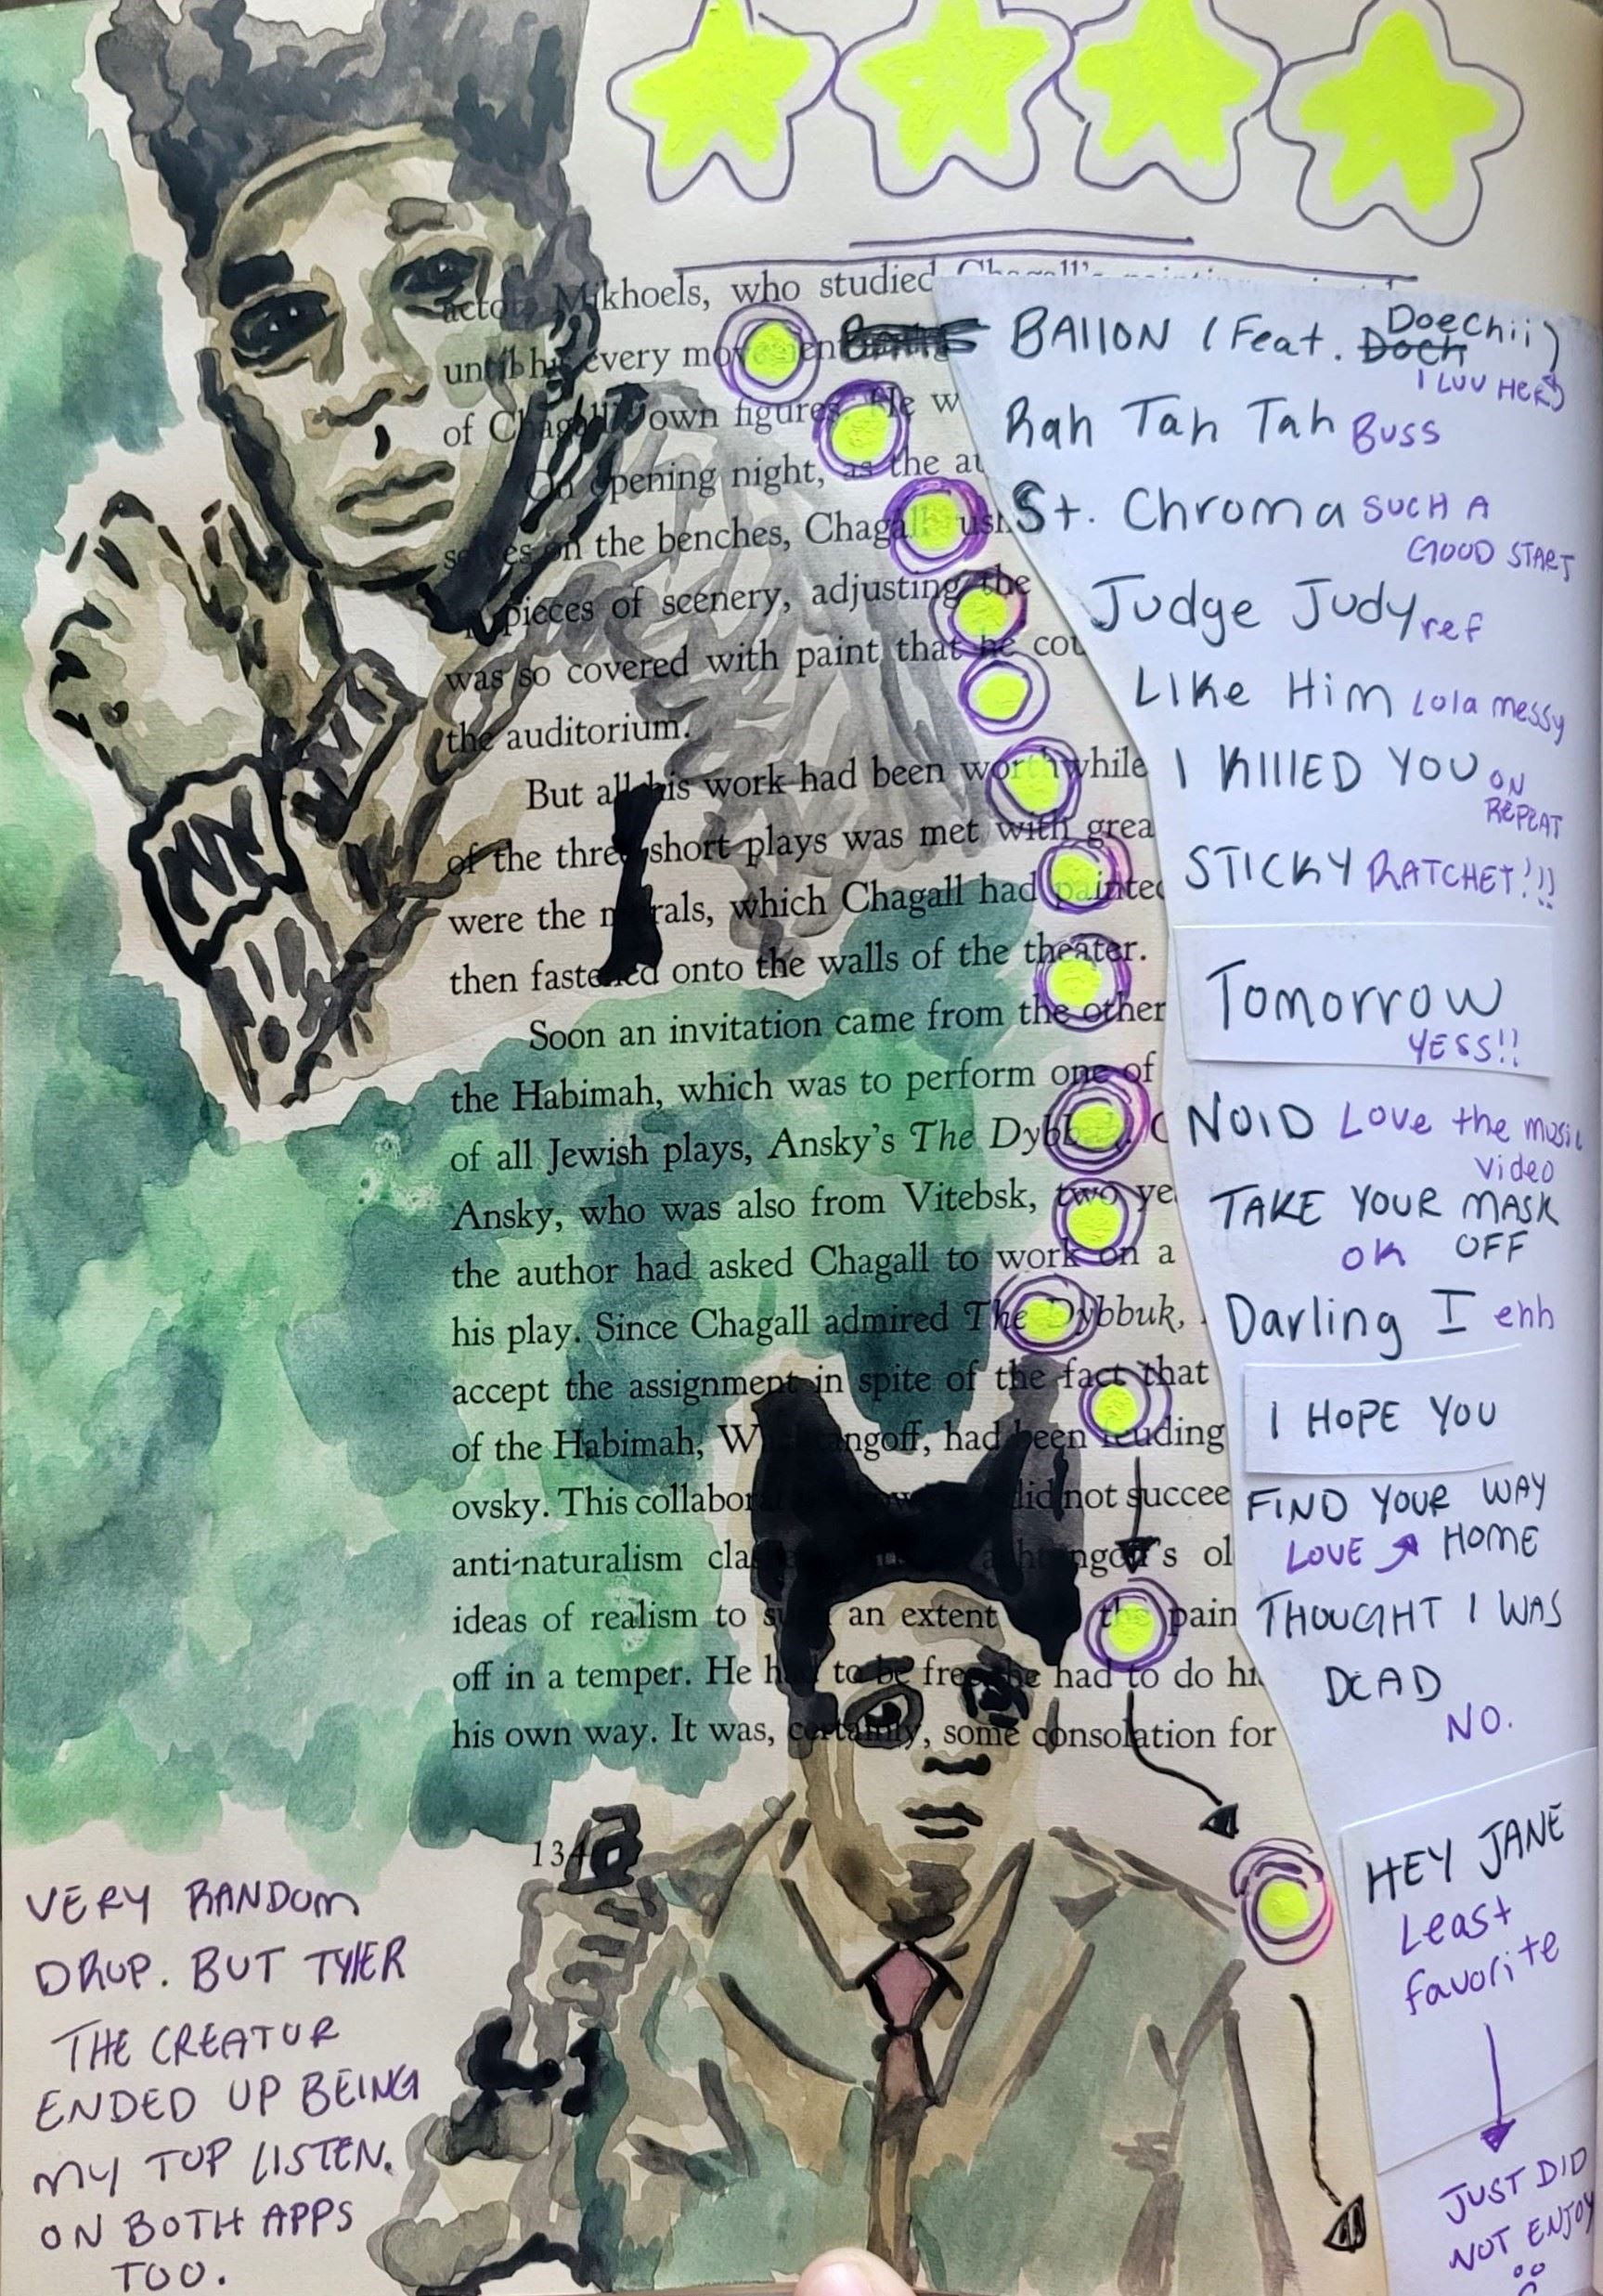 actor, Mikhoels, who studied Chagall's
until his every movement
of Chagall's own figures. He w
On opening night, as the au
selves on the benches, Chagall rush
pieces of scenery, adjusting the
was so covered with paint that he cou
the auditorium.
But all his work had been worthwhile
of the three short plays was met with grea
were the murals, which Chagall had painted
then fastened onto the walls of the theater.
Soon an invitation came from the other
the Habimah, which was to perform one of
of all Jewish plays, Ansky's The Dybbuk.
Ansky, who was also from Vitebsk, two ye
the author had asked Chagall to work on a
his play. Since Chagall admired The Dybbuk,
accept the assignment in spite of the fact that
of the Habimah, angoff, had been leuding
ovsky. This collabora did not succee
anti-naturalism cla 's ol
ideas of realism to such an extent the pain
off in a temper. He had to be free, he had to do hi
his own way. It was, certainly, some consolation for
134
BAllON (Feat. Doechii)
I LUV HER
Rah Tah Tah BUSS
St. Chroma SUCH A
GOOD START
Judge Judy ref
LIKe HIM Lola messy
I KIllED YOU ON
REPEAT
STICKY RATCHET!!!
Tomorrow
YESS!!
NOID LOVE the music
video
TAKE YOUR MASK
OK OFF
Darling I ehh
I HOPE YOU
FIND YOUR WAY
LOVE HOME
THOUGHT I WAS
DEAD
NO.
HEY JANE
Least
favorite
JUST DID
NOT ENJOY
VERY RANDOM
DROP. BUT TYlER
THE CREATOR
ENDED UP BEING
MY TOP LISTEN.
ON BOTH APPS
TOO.